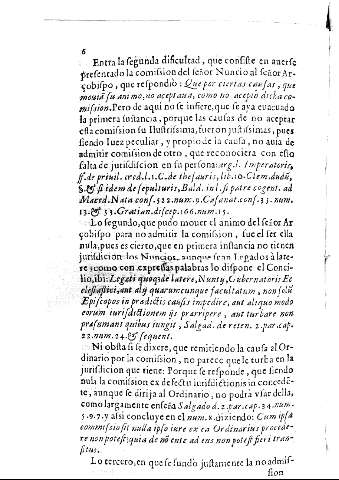 6
Entra la segunda dificultad, que consiste en auerse
presentado la comission del señor Nuncio al señor Ar-
çobispo, que respondiò: Que por ciertas causas, que
mouiã su animo, no aceptaua, como no aceptò dicha co-
mission. Pero de aqui no se infiere, que se aya euacuado
la primera instancia, porque las causas de no aceptar
esta comission su Ilustrissima, fueron justissimas, pues
siendo Iuez peculiar, y propio de la causa, no auia de
admitir comission de otro, que reconociera con esso
falta de jurisdiccion en su persona: arg. l. Imperatoris,
ff. de priuil. cred. l. 1. C. de thesauris, lib. 10. Clem. dudũ,
§. & si idem de sepulturis, Bald. in l. si patre cogent. ad
Maced. Nata cons. 522. num. 9. Casanat. cons. 33. num.
13. & 33. Gratian. discep. 166. num. 15.
Lo segundo, que pudo mouer el animo del señor Ar
çobispo para no admitir la comission, fue el ser ella
nula, pues es cierto, que en primera instancia no tienen
jurisdiccion los Nuncios, aunque sean Legados à late-
re: como con expressas palabras lo dispone el Conci-
lio, ibi: Legati quoq; de latere, Nuntij, Gubernatoris Ec
clesiastici, aut alij quarumcunque facultatum, non solũ
Episcopos in prædictis causis impedire, aut aliquo modo
eorum iurisdictionem ijs præripere, aut turbare non
præsumant quibus iungit, Salgad. de reten. 2. par. cap.
22. num. 24. & sequent.
Ni obsta si se dixere, que remitiendo la causa al Or-
dinario por la comission, no parece que le turba en la
jurisdiccion que tiene: Porque se responde, que siendo
nula la comission ex defectu iurisdictionis in concedẽ-
te, aunque se dirija al Ordinario, no podrà vsar della,
como largamente enseña Salgado d. 2. par. cap. 34. num.
5. 9. 7. y assi concluye en el num. 8. diziendo: Cum ipsa
commissio sit nulla ipso iure ex ea Ordinarius procede-
re non potest; quia de nõ ente ad ens non potest fieri tran-
situs.
Lo tercero, en que se fundò justamente la no admis-
sion